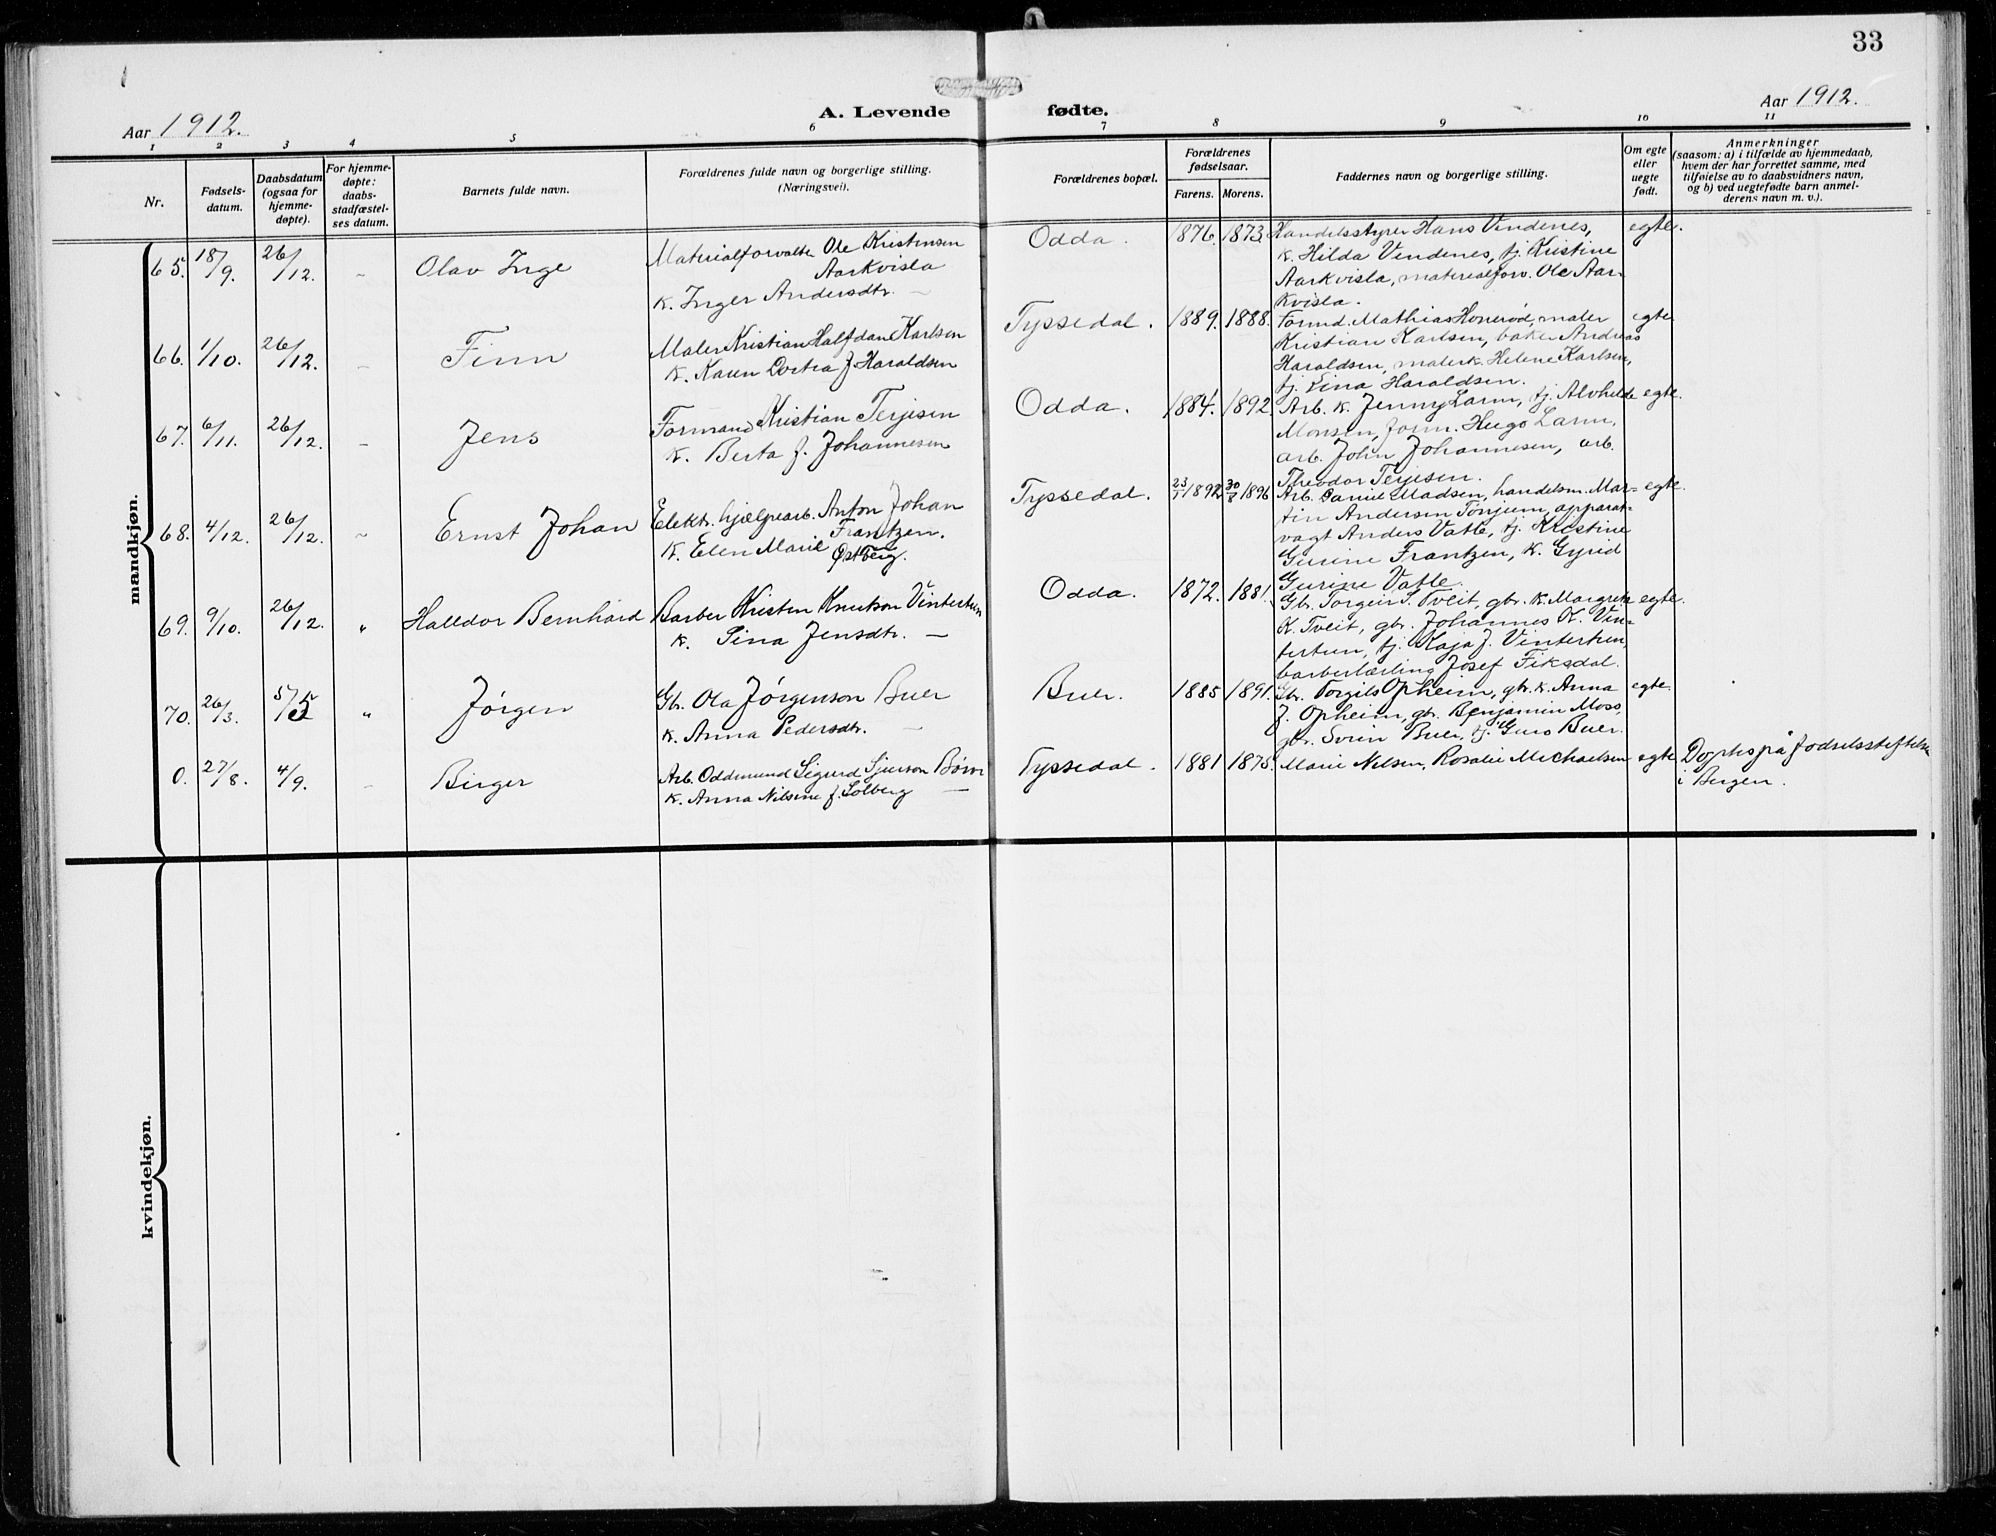 33
Aar 1912.
A. Levende fødte.
Aar 1912.
1 2 3 4 5 6 7 8 9 10 11
Nr.
Fødsels-
datum.
Daabsdatum
(ogsaa for
hjemme-
døpte).
For hjemme-
døpte:
daabs-
stadfæstel-
ses datum.
Barnets fulde navn.
Forældrenes fulde navn og borgerlige stilling.
(Næringsvei).
Forældrenes bopæl.
Forældrenes
fødselsaar.
Farens. Morens.
Faddernes navn og borgerlige stilling.
Om egte
eller
uegte
født.
Anmerkninger
(saasom: a) i tilfælde av hjemmedaab,
hvem der har forrettet samme, med
tilføielse av to daabsvidners navn,
og b) ved uegtefødte barn anmel-
derens navn m. v.).
mandkjøn.
65. 18/9. 26/12. – Olav Inge
Materialforvalte Ole Kristensen
Aarkvisla
K. Inger Andersdtr. –
Odda. 1876. 1873
Handelsstyrer Hans Vindenes,
k. Hilda Vendenes, tj. Kristine
Aarkvisla, materialforv. Ole Aar-
kvisla.
egte.
66. 1/10. 26/12. – Finn
Maler Kristian Halfdan Karlsen
K. Karen Dortea f. Haraldsen
Tyssedal. 1889. 1888.
Formd. Mathias Honerød, maler
Kristian Karlsen, baker Andreas
Haraldsen, malerk. Helene Karlsen,
tj. Lina Haraldsen.
egte
67. 6/11. 26/12. – Jens
Formand Kristian Terjesen
K. Berta f. Johannesen
Odda. 1884. 1892.
Arb. k. Jenny Larm, tj. Alvhilde
Monsen, form. Hugo Larm,
arb. John Johannesen, arb.
Theodor Terjesen.
egte.
68. 4/12. 26/12. – Ernst Johan
Elekt. hjælpearb. Anton Johan
Frantzen.
K. Elen Marie Østberg.
Tyssedal. 23/1 1892 30/8 1896
Arb. Daniel Madsen, handelsm. Mar-
tin Andersen Tønjum, apparat-
vagt Anders Vatle, tj. Kristine
Gurine Frantzen, k. Gyrid
Gurine Vatle.
egte.
69. 9/10. 26/12. „ Halldor Bernhard
Barber Kristen Knutson Vintertun
K. Sina Jensdtr. –
Odda. 1872. 1881.
Gbr. Torgeir S. Tveit, gbr. k. Margreta
K. Tveit, gbr. Johannes K. Vin-
tertun, tj. Kaja J. Vintertun,
barberlærling Josef Fiksdal.
egte.
70. 26/3. 5/5 „ Jørgen
Gbr. Ola Jørgenson Buer
K. Anna Pedersdtr. –
Buer. 1885 1891.
Gbr. Torgils Opheim, gbr. k. Anna
J. Opheim, gbr. Benjamin Moss,
gbr. Svein Buer, tj. Guro Buer.
egte.
0. 27/8. 4/9. – Birger
Arb. Oddmund Sigurd Sjurson Børve
K. Anna Nilsine f. Solberg –
Tyssedal. 1881 1875.
Marie Nilsen, Rosalie Michaelsen
egte
Døpt på fødselsstiftelse
i Bergen.
kvindekjøn.